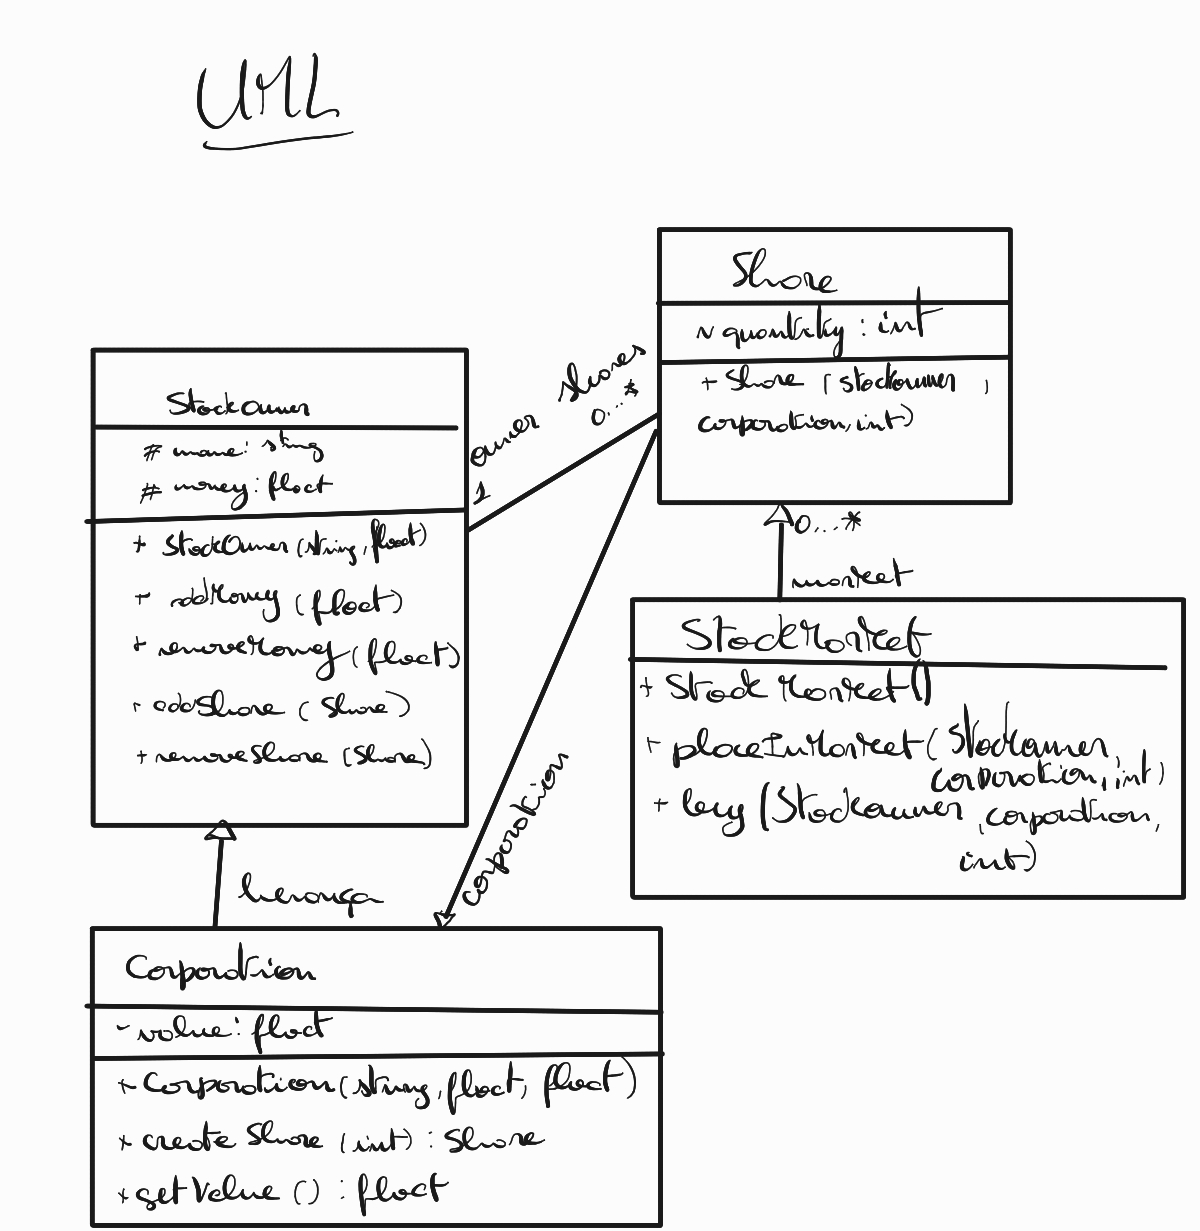 UML
Share
~ quantity : int
+ Share (stockowner,
corporation, int)
StockOwner
# name: string
# money: float
+ StockOwner (string, float)
+ addMoney (float)
+ removeMoney (float)
+ addShare (Share)
+ removeShare (Share)
owner
1
shares
0...*
corporation
0...*
market
StockMarket
+ StockMarket()
+ placeInMarket (Stockowner,
corporation, int)
+ buy (Stockowner
, corporation,
int)
herança
Corporation
- value: float
+ Corporation (string, float, float)
+ create Share (int) : Share
+ getValue () : float